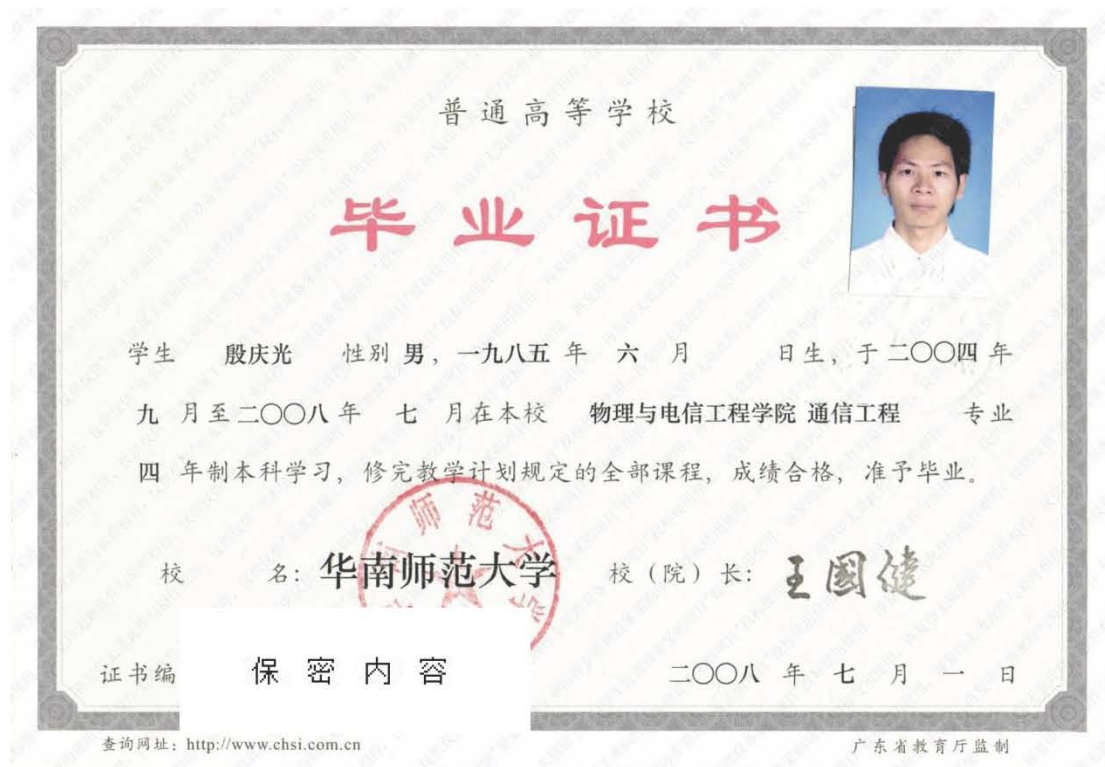 普通高等学校
毕业证书
学生 殷庆光 性别 男，一九八五 年 六 月 日生，于二〇〇四 年
九 月至二〇〇八 年 七 月在本校 物理与电信工程学院 通信工程 专业
四 年制本科学习，修完教学计划规定的全部课程，成绩合格，准予毕业。
校 名：华南师范大学 校（院）长：王國健
证书编 保密内容 二〇〇八 年 七 月 一 日
查询网址：http://www.chsi.com.cn 广东省教育厅监制